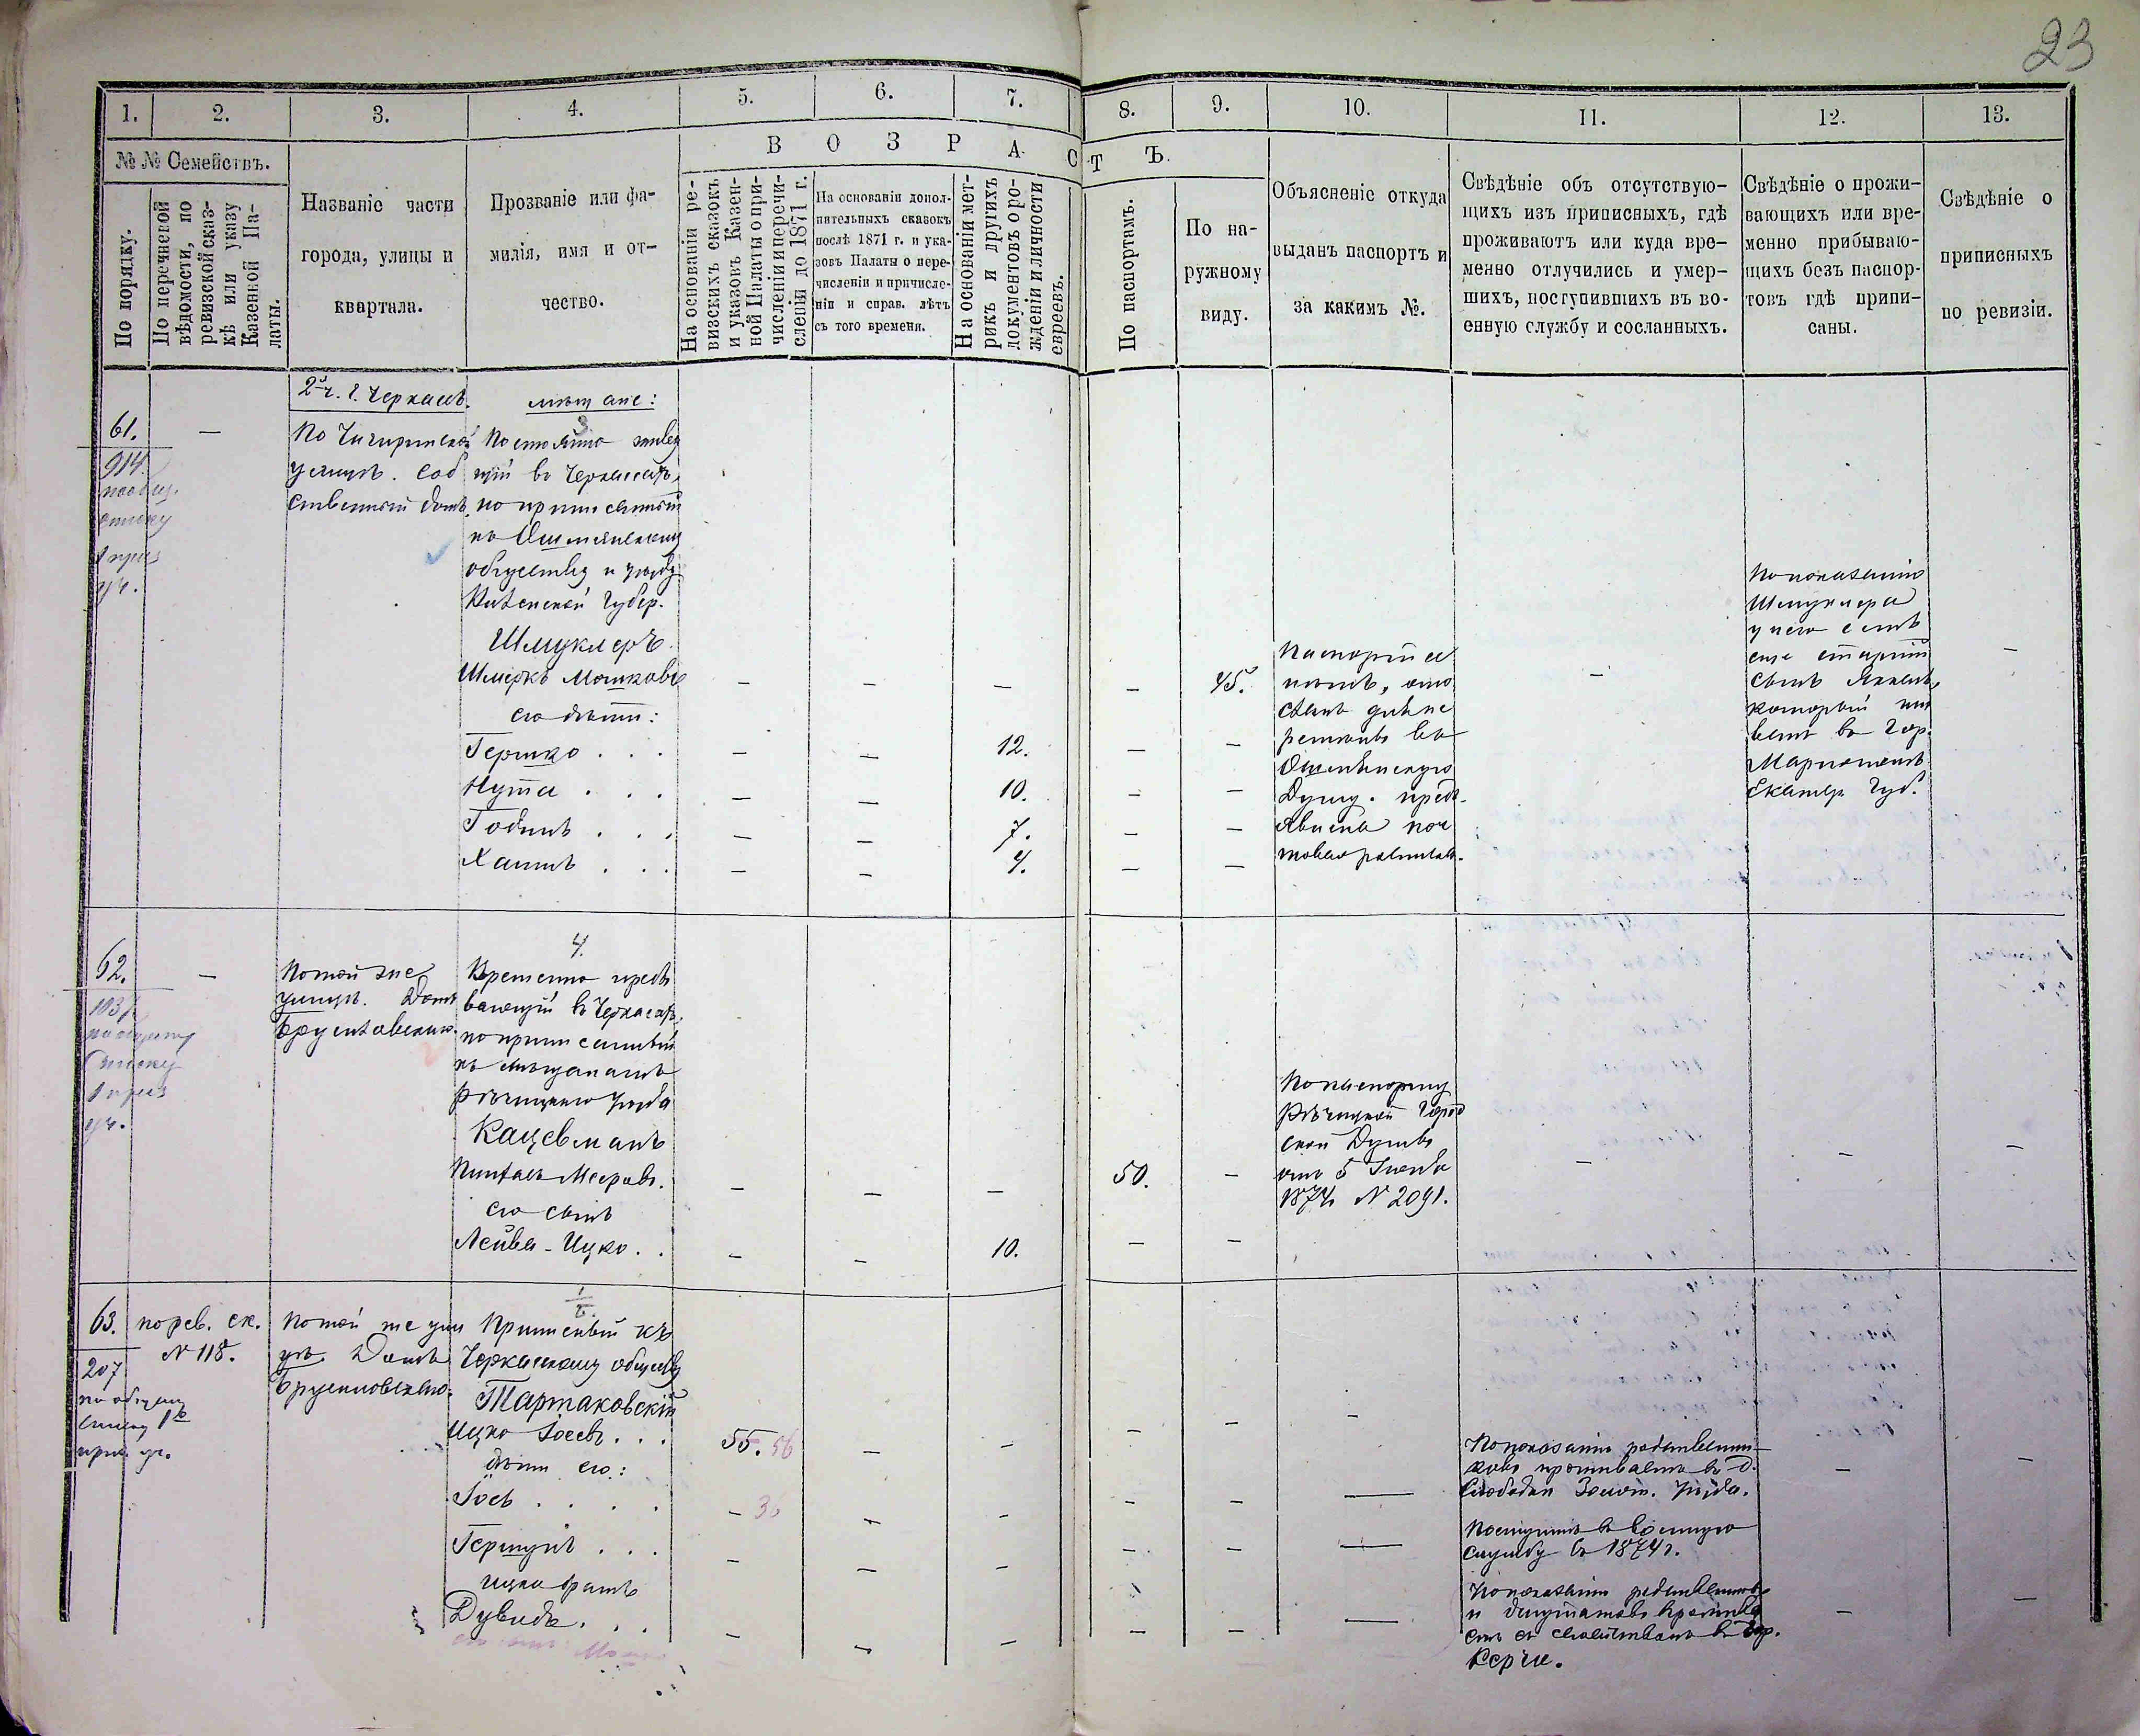 23
1.
2.
3.
4.
5.
6.
7.
8.
9.
10.
11.
12.
13.
№№ Семействъ.
По порядку.
По перечневой
вѣдомости, по
ревизской сказ-
кѣ или указу
Казенной Па-
латы.
Названіе части
города, улицы и
квартала.
Прозваніе или фа-
милія, имя и от-
чество.
ВОЗРАСТЪ.
На основаніи ре-
визскихъ сказокъ
и указовъ Казен-
ной Палаты о при-
численіи и перечи-
сленіи до 1871 г.
На основаніи допол-
нительныхъ сказокъ
послѣ 1871 г. и ука-
зовъ Палаты о пере-
численіи и причисле-
ніи и справ. лѣтъ
съ того времени.
На основаніи мет-
рикъ и другихъ
документовъ о ро-
жденіи и личности
евреевъ.
По паспортамъ.
По на-
ружному
виду.
Объясненіе откуда
выданъ паспортъ и
за какимъ №.
Свѣдѣніе объ отсутствую-
щихъ изъ приписныхъ, гдѣ
проживаютъ или куда вре-
менно отлучились и умер-
шихъ, поступившихъ въ во-
енную службу и сосланныхъ.
Свѣдѣніе о прожи-
вающихъ или вре-
менно прибываю-
щихъ безъ паспор-
товъ гдѣ припи-
саны.
Свѣдѣніе о
приписныхъ
по ревизіи.
2й ч. г. Черкасъ.
мѣщане:
61.
—
914
списку
уч.
По Чигиринской
улицѣ. Соб
ственный домъ.
3.
Постоянно живу
щій въ Черкассахъ,
но приписанный
къ Ошмянскому
обществу и уѣзду
Виленской Губер.
Шмуклеръ
Шмерко Мошковъ
его дѣти:
Гершко . . .
Нута . . .
Годинъ . . .
Хаимъ . . .
12.
10.
7.
4.
45.
Паспорта не
имѣетъ, ото
сланъ для пе
ремѣны въ
Ошмянскую
Думу. предъ-
явлена поч
товая росписка.
По показанію
Шмуклера
у него есть
еще старшій
сынъ Янкель,
который жи
ветъ въ гор.
Маріуполѣ
Екатер. Губ.
62.
—
списку
уч.
По той же
улицѣ. Домъ
4.
Временно пребы
вающій въ Черкасахъ,
но приписанный
къ мѣщанамъ
Рѣчицкаго уѣзда
Кацевманъ
Мееровъ.
его сынъ
Лейба-Ицко. .
10.
50.
—
По паспорту
Рѣчицкой Город
ской Думы
отъ 5
1874 № 2091.
63.
207
по общему
списку 1го
приз. уч.
по рев. ск.
№ 118.
По той же ули
цѣ. Домъ
Приписный къ
Черкасскому обществу
Тартаковскій
Ицко Іосевъ. . .
дѣти его:
Іось . . . .
Гершунъ . . .
Ицки братъ
Дувидъ. . .
55. 56
По показанію родственни-
ковъ проживаетъ въ д.
Слободки Золот. Уѣзда.
Поступилъ въ военную
службу въ 1874 г.
По показанію родственниковъ
и депутатовъ прожива
етъ съ семействомъ въ гор.
Керчи.